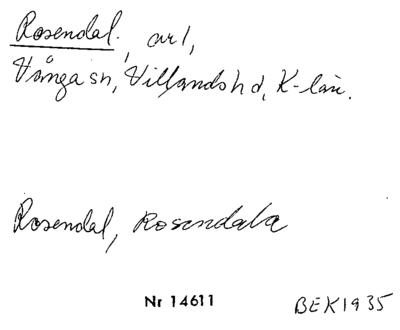 Rosendal, arl,
Vånga sn, Villands hd, K-län.
Rosendal, Rosendala
Nr 14611 BEK1935